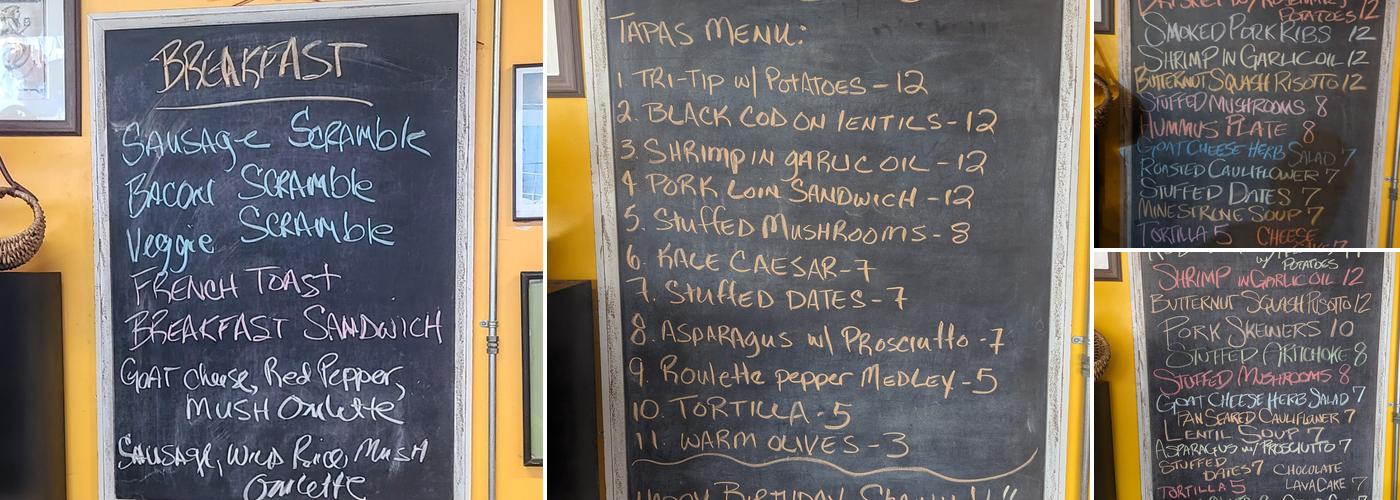 BREAKFAST
SAUSAGE SCRAMBLE
BACON SCRAMBLE
VEGGIE SCRAMBLE
FRENCH TOAST
BREAKFAST SANDWICH
GOAT CHEESE, RED PEPPER,
MUSH OMLETTE
SAUSAGE, WILD RICE, MUSH
OMLETTE
TAPAS MENU:
1. TRI-TIP W/ POTATOES - 12
2. BLACK COD ON LENTILS - 12
3. SHRIMP IN GARLIC OIL - 12
4 PORK LOIN SANDWICH - 12
5. STUFFED MUSHROOMS - 8
6. KALE CAESAR - 7
7. STUFFED DATES - 7
8. ASPARAGUS W/ PROSCIUTTO - 7
9. ROULETTE PEPPER MEDLEY - 5
10. TORTILLA - 5
11. WARM OLIVES - 3
HAPPY BIRTHDAY
BRISKET W/ ROSEMARY
POTATOES 12
SMOKED PORK RIBS 12
SHRIMP IN GARLIC OIL 12
BUTTERNUT SQUASH RISOTTO 12
STUFFED MUSHROOMS 8
HUMMUS PLATE 8
GOAT CHEESE HERB SALAD 7
ROASTED CAULIFLOWER 7
STUFFED DATES 7
MINESTRONE SOUP 7
TORTILLA 5 CHEESE
W/ POTATOES
SHRIMP IN GARLIC OIL 12
BUTTERNUT SQUASH RISOTTO 12
PORK SKEWERS 10
STUFFED ARTICHOKE 8
STUFFED MUSHROOMS 8
GOAT CHEESE HERB SALAD 7
PAN SEARED CAULIFLOWER 7
LENTIL SOUP 7
ASPARAGUS W/ PROSCIUTTO 7
STUFFED DATES 7
CHOCOLATE
LAVA CAKE 7
TORTILLA 5